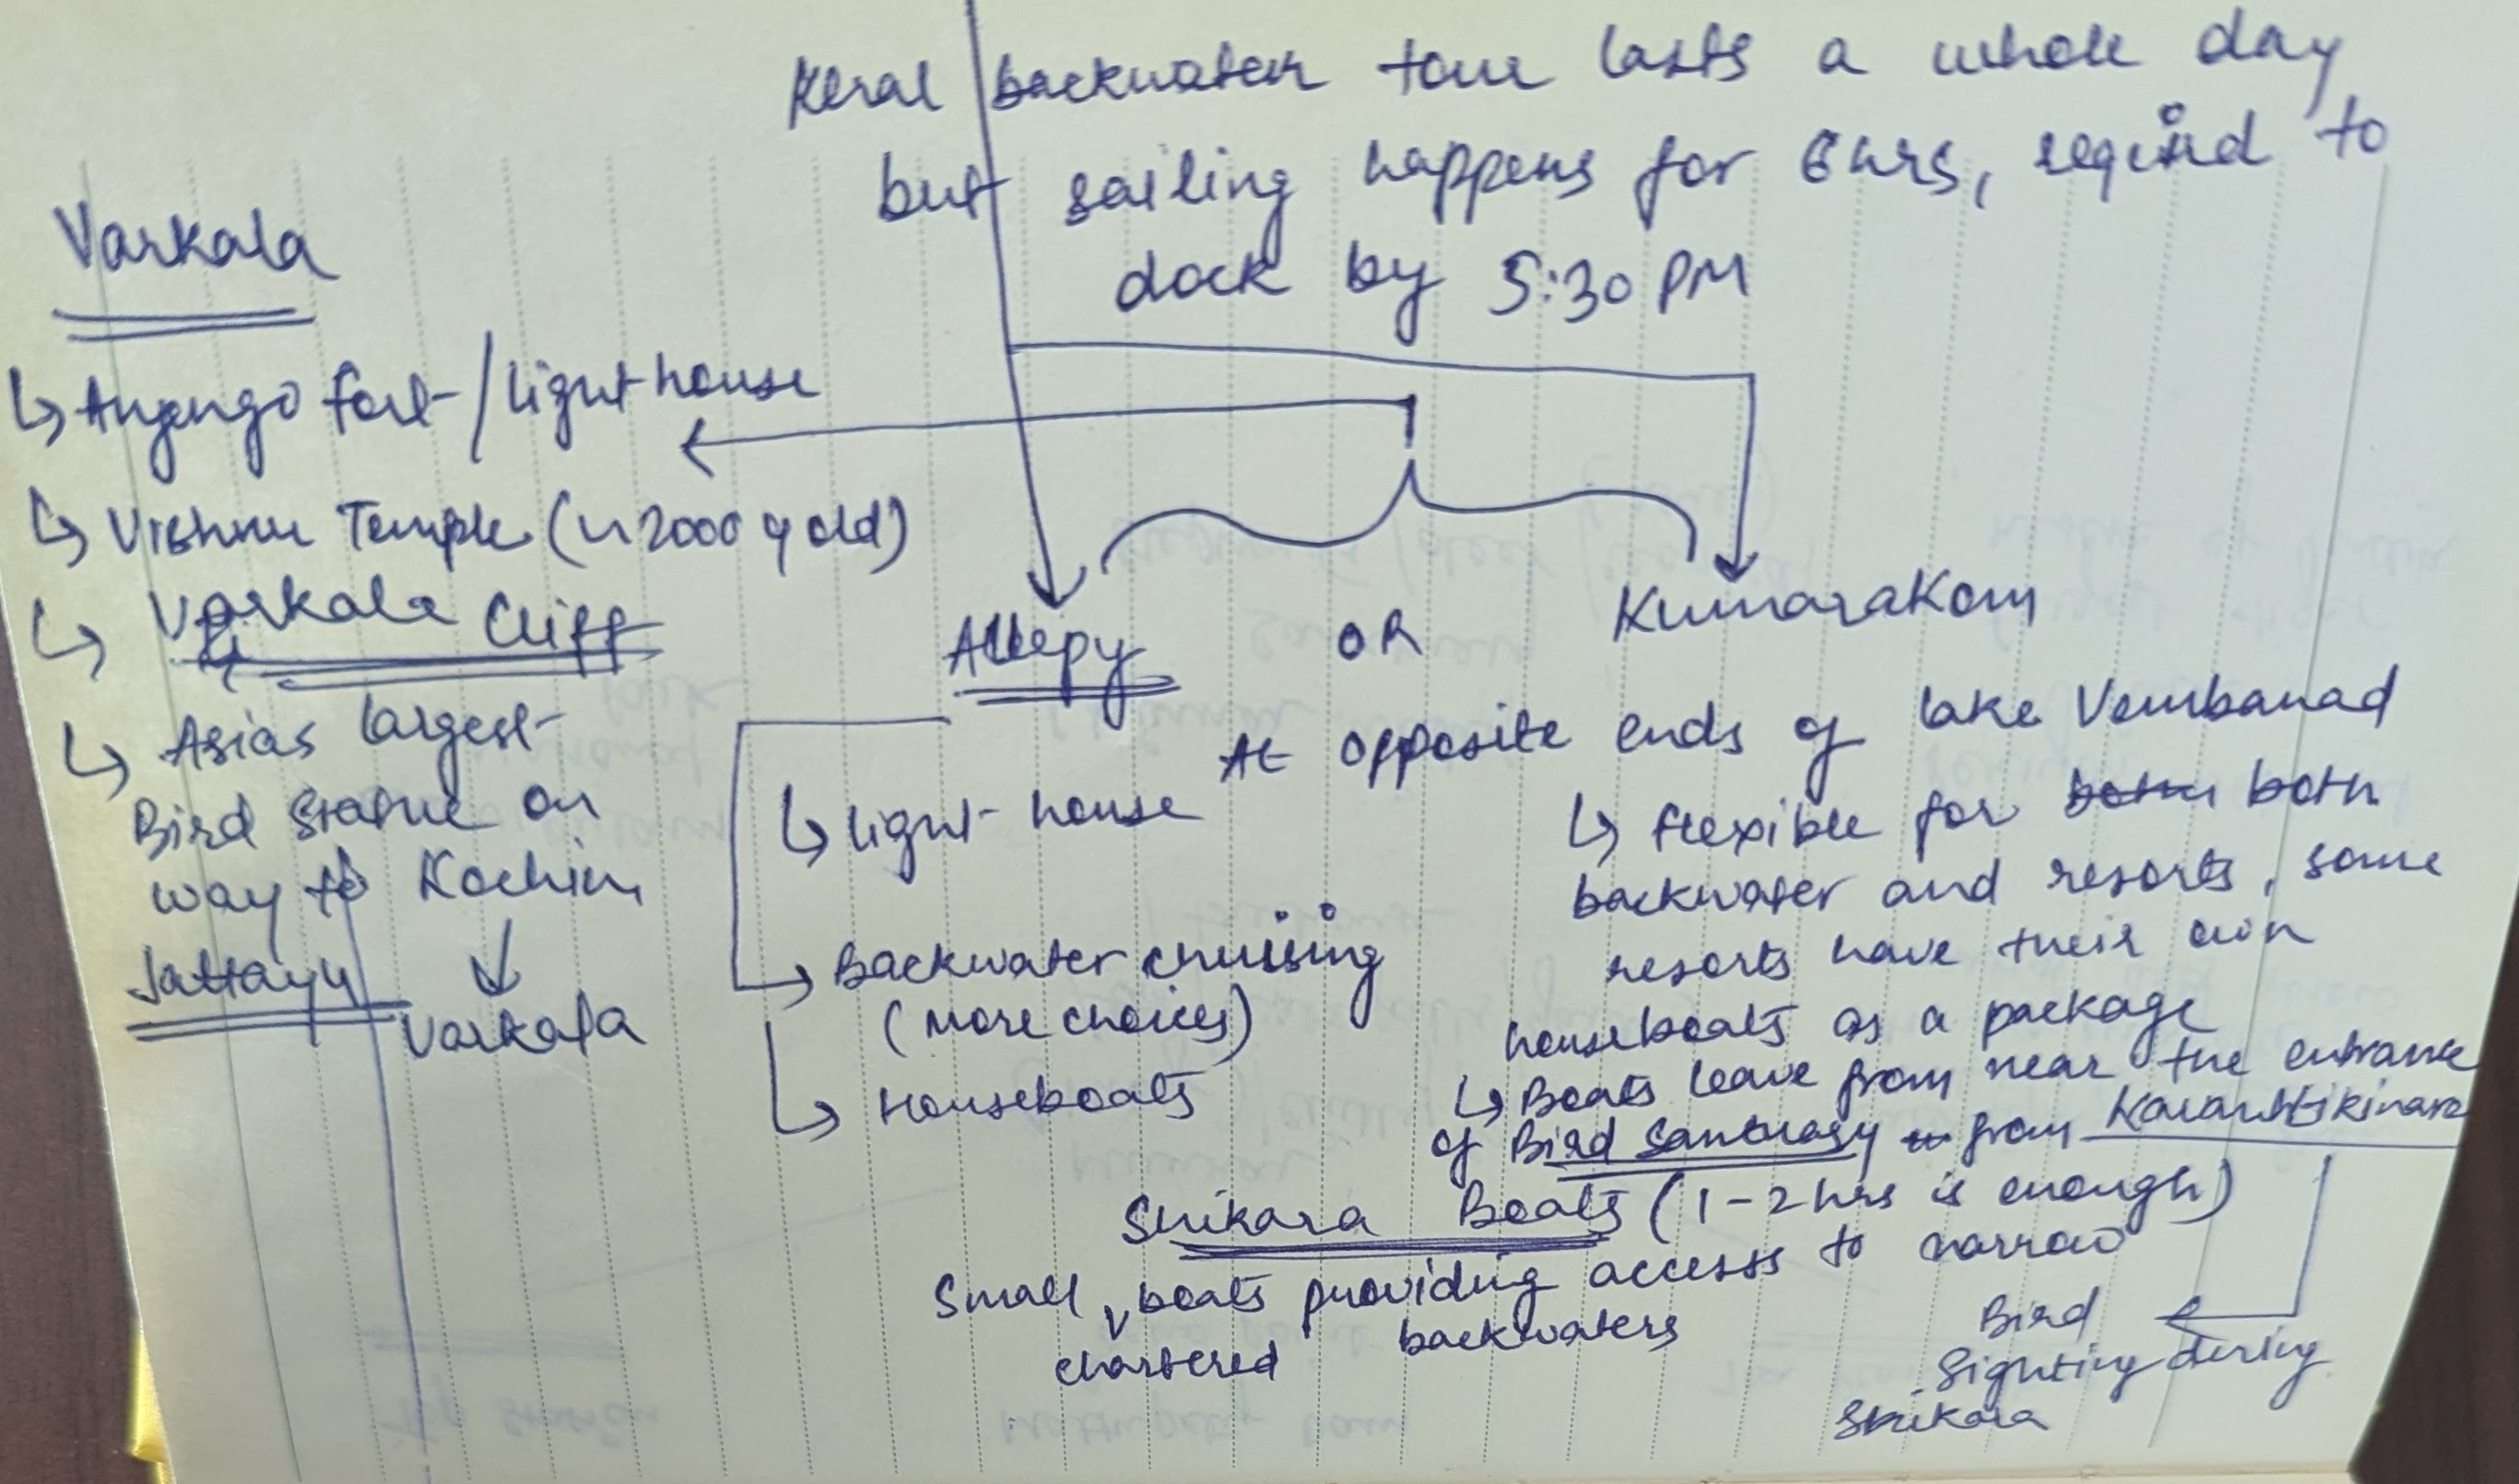 Keral backwater tour lasts a whole day
but sailing happens for 6 hrs, required to
dock by 5:30 PM
Varkala
↳ Anjengo fort / Light house
↳ Vishnu Temple (~ 2000 y old)
↳ Varkala Cliff
↳ Asias largest
Bird Statue on
way to Kochin
Jattayu
Varkala
Allepy OR Kumarakom
At opposite ends of lake Vembanad
↳ light-house
↳ Backwater cruising
(more choices)
↳ Houseboats
↳ flexible for both
backwater and resorts, some
resorts have their own
houseboats as a package
↳ Boats leave from near the entrance
of Bird Santuary from
Shikara Boats (1-2 hrs is enough)
Small chartered boats providing accesss to narrow
backwaters
Bird
Sighting during
Shikara